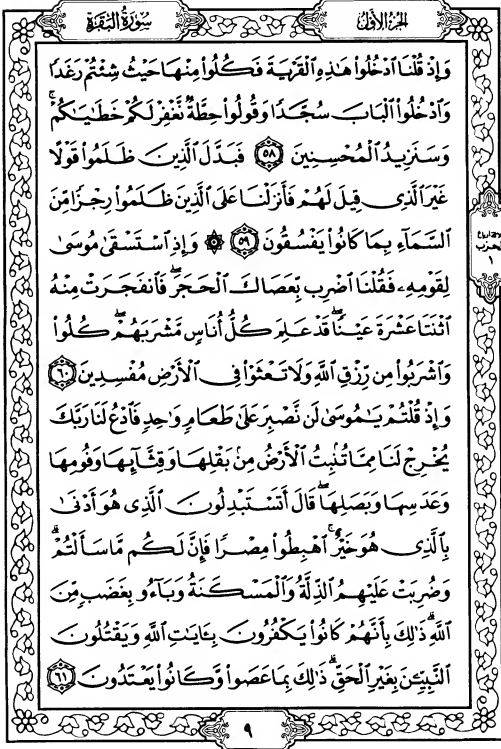 سورة البقرة
الجزء الأول
وَإِذْ قُلْنَا ادْخُلُوا هَٰذِهِ الْقَرْيَةَ فَكُلُوا مِنْهَا حَيْثُ شِئْتُمْ رَغَدًا
وَادْخُلُوا الْبَابَ سُجَّدًا وَقُولُوا حِطَّةٌ نَّغْفِرْ لَكُمْ خَطَايَاكُمْ ۚ
وَسَنَزِيدُ الْمُحْسِنِينَ ٥٨ فَبَدَّلَ الَّذِينَ ظَلَمُوا قَوْلًا
غَيْرَ الَّذِي قِيلَ لَهُمْ فَأَنزَلْنَا عَلَى الَّذِينَ ظَلَمُوا رِجْزًا مِّنَ
السَّمَاءِ بِمَا كَانُوا يَفْسُقُونَ ٥٩ ۞ وَإِذِ اسْتَسْقَىٰ مُوسَىٰ
لِقَوْمِهِ فَقُلْنَا اضْرِب بِّعَصَاكَ الْحَجَرَ ۖ فَانفَجَرَتْ مِنْهُ
اثْنَتَا عَشْرَةَ عَيْنًا ۖ قَدْ عَلِمَ كُلُّ أُنَاسٍ مَّشْرَبَهُمْ ۖ كُلُوا
وَاشْرَبُوا مِن رِّزْقِ اللَّهِ وَلَا تَعْثَوْا فِي الْأَرْضِ مُفْسِدِينَ ٦٠
وَإِذْ قُلْتُمْ يَا مُوسَىٰ لَن نَّصْبِرَ عَلَىٰ طَعَامٍ وَاحِدٍ فَادْعُ لَنَا رَبَّكَ
يُخْرِجْ لَنَا مِمَّا تُنبِتُ الْأَرْضُ مِن بَقْلِهَا وَقِثَّائِهَا وَفُومِهَا
وَعَدَسِهَا وَبَصَلِهَا ۖ قَالَ أَتَسْتَبْدِلُونَ الَّذِي هُوَ أَدْنَىٰ
بِالَّذِي هُوَ خَيْرٌ ۚ اهْبِطُوا مِصْرًا فَإِنَّ لَكُم مَّا سَأَلْتُمْ ۗ
وَضُرِبَتْ عَلَيْهِمُ الذِّلَّةُ وَالْمَسْكَنَةُ وَبَاءُو بِغَضَبٍ مِّنَ
اللَّهِ ۗ ذَٰلِكَ بِأَنَّهُمْ كَانُوا يَكْفُرُونَ بِآيَاتِ اللَّهِ وَيَقْتُلُونَ
النَّبِيِّينَ بِغَيْرِ الْحَقِّ ۗ ذَٰلِكَ بِمَا عَصَوا وَّكَانُوا يَعْتَدُونَ ٦١
الحزب
١
٩